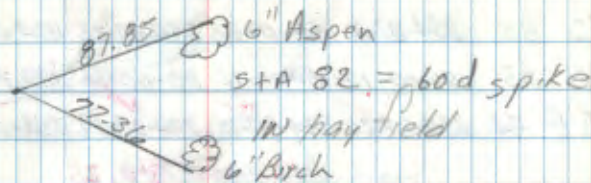 87.85
6" Aspen
StA 82 = 60d spike
IN hay field
77.36
6" Birch